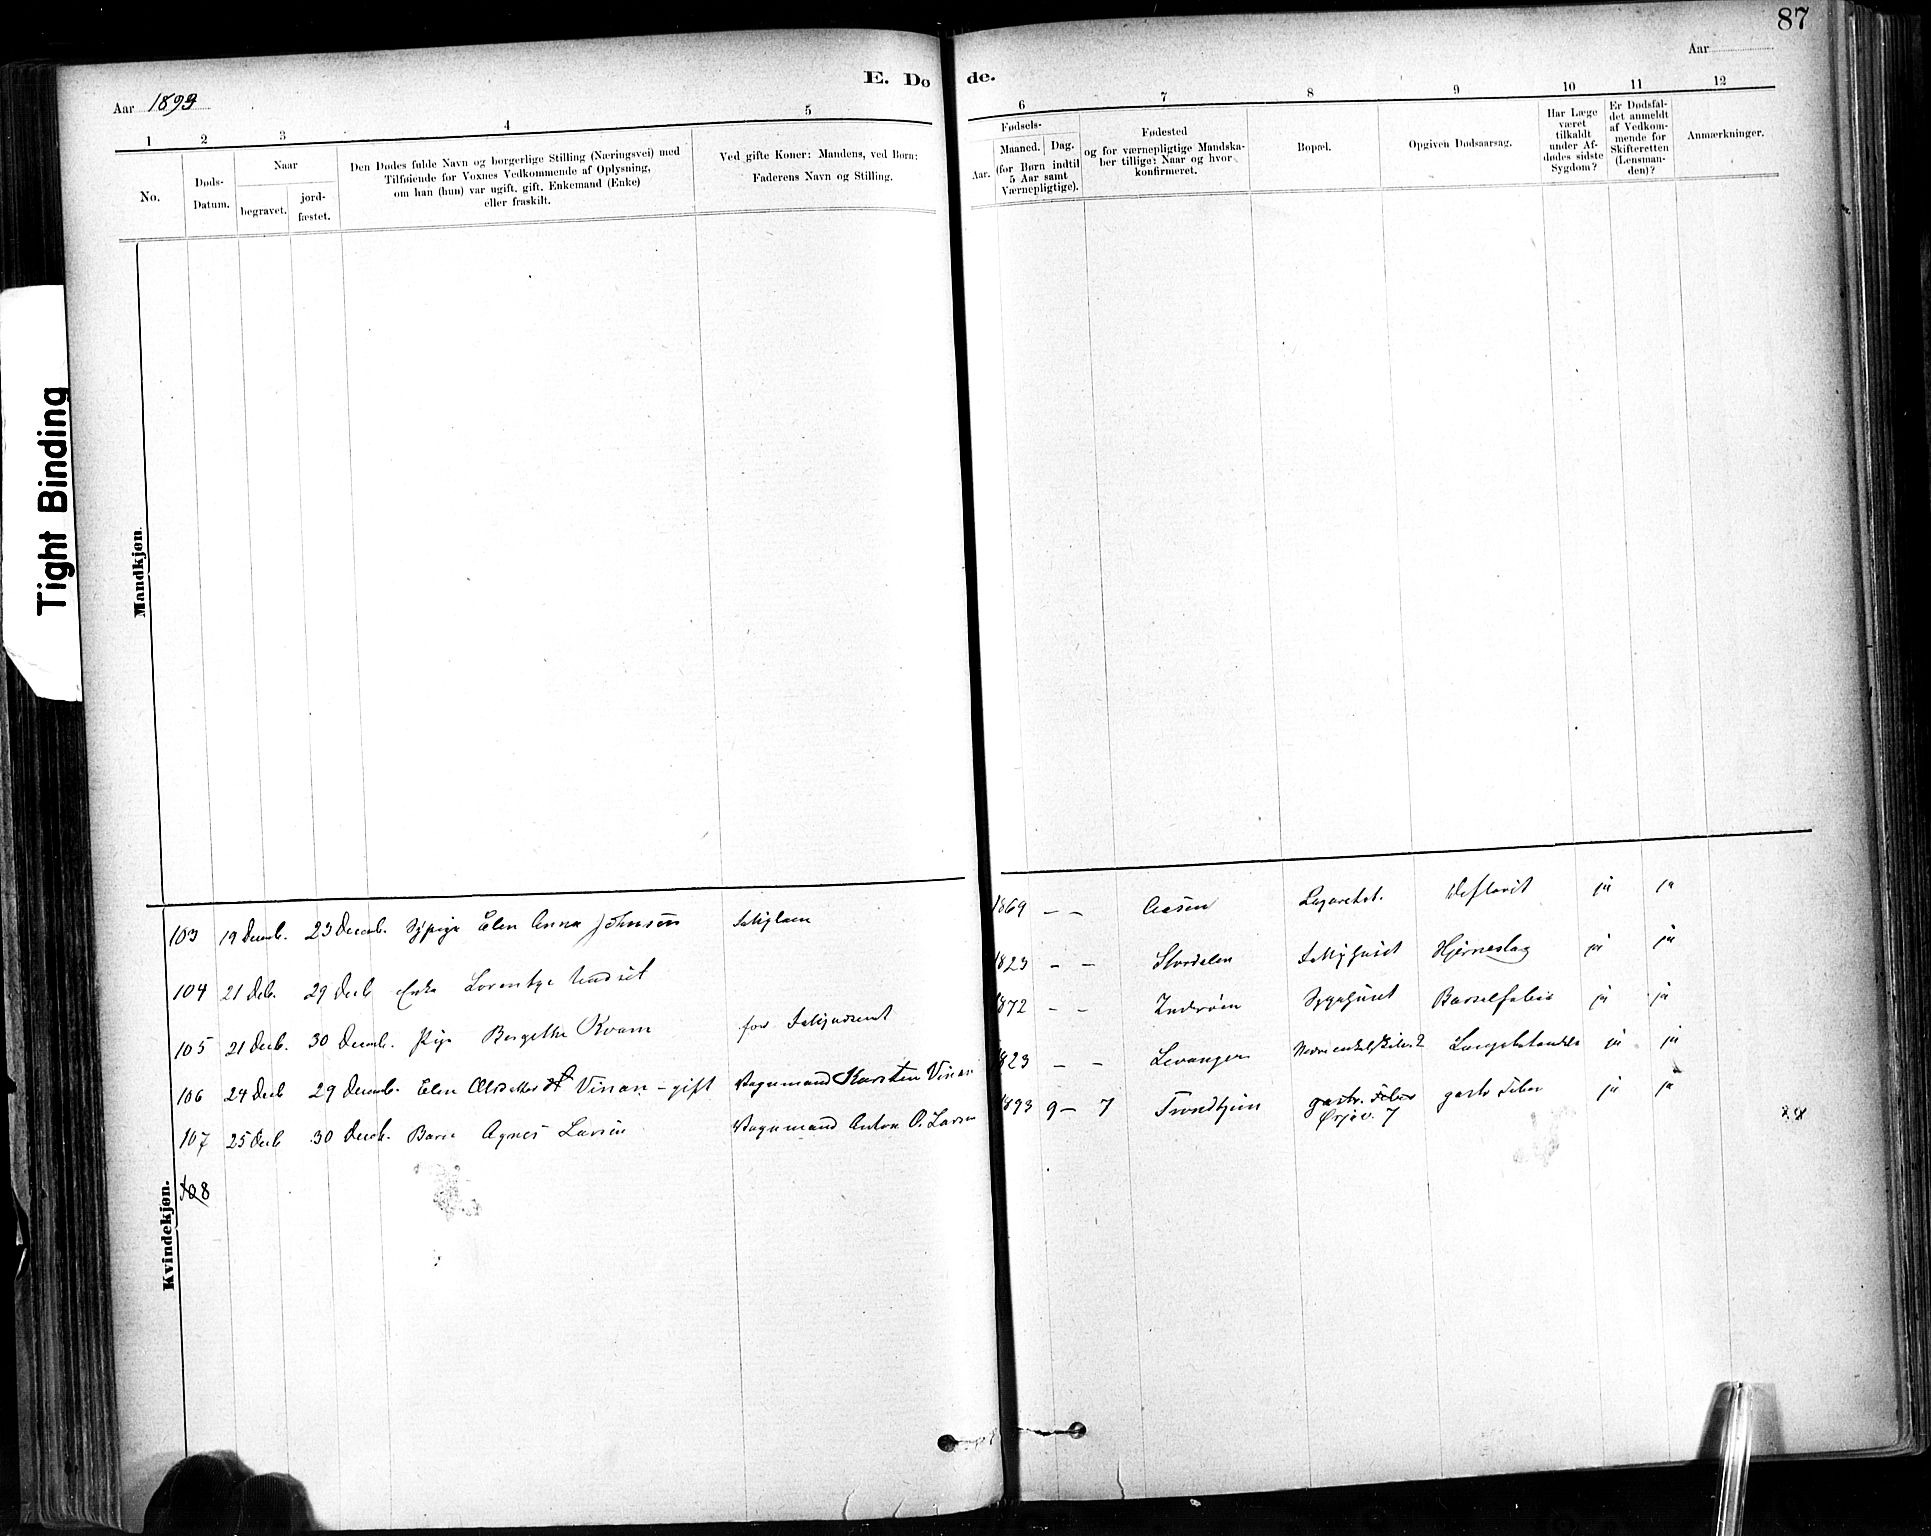 87
Aar
E. Dø de.
Aar 1893
1 2 3 4 5 6 7 8 9 10 11 12
No.
Døds-
Datum.
Naar
begravet.
jord-
fæstet.
Den Dødes fulde Navn og borgerlige Stilling (Næringsvei) med
Tilføiende for Voxnes Vedkommende af Oplysning,
om han (hun) var ugift, gift, Enkemand (Enke)
eller fraskilt.
Ved gifte Koner: Mandens, ved Børn:
Faderens Navn og Stilling.
Fødsels-
Aar.
Maaned. Dag.
(for Børn indtil
5 Aar samt
Værnepligtige).
Fødested
og for værnepligtige Mandska-
ber tillige: Naar og hvor
konfirmeret.
Bopæl.
Opgiven Dødsaarsag.
Har Læge
været
tilkaldt
under Af-
dødes sidste
Sygdom?
Er Dødsfal-
det anmeldt
af Vedkom-
mende for
Skifteretten
(Lensman-
den)?
Anmærkninger.
Tight Binding
Mandkjøn.
103 19 Decmb. 23 Decmb. Sypige Elen Anna Johnsen 1869 – – Aasen Lazarethet. ja ja
104 21 Decb. 29 Decb Enke Lorentze Undset 1823 – – Stordalen Hjerneslag ja ja
105 21 Decb. 30 Decemb. Pige Bergithe Kvam 1872 – – Inderøen Sygehuset Barselfeber ja ja
106 24 Decb 29 Decemb. Elen Vinan – gift Vognmand Karsten Vinan 1823 – – Levanger ja ja
107 25 Decb 30 Decb. Barn Agnes Larsen Vognmand Anton O. Larsen 1893 9 – 7 Trondhjem gastr. Feber gastr Feber ja ja
Ørjav. 7
108
Kvindekjøn.